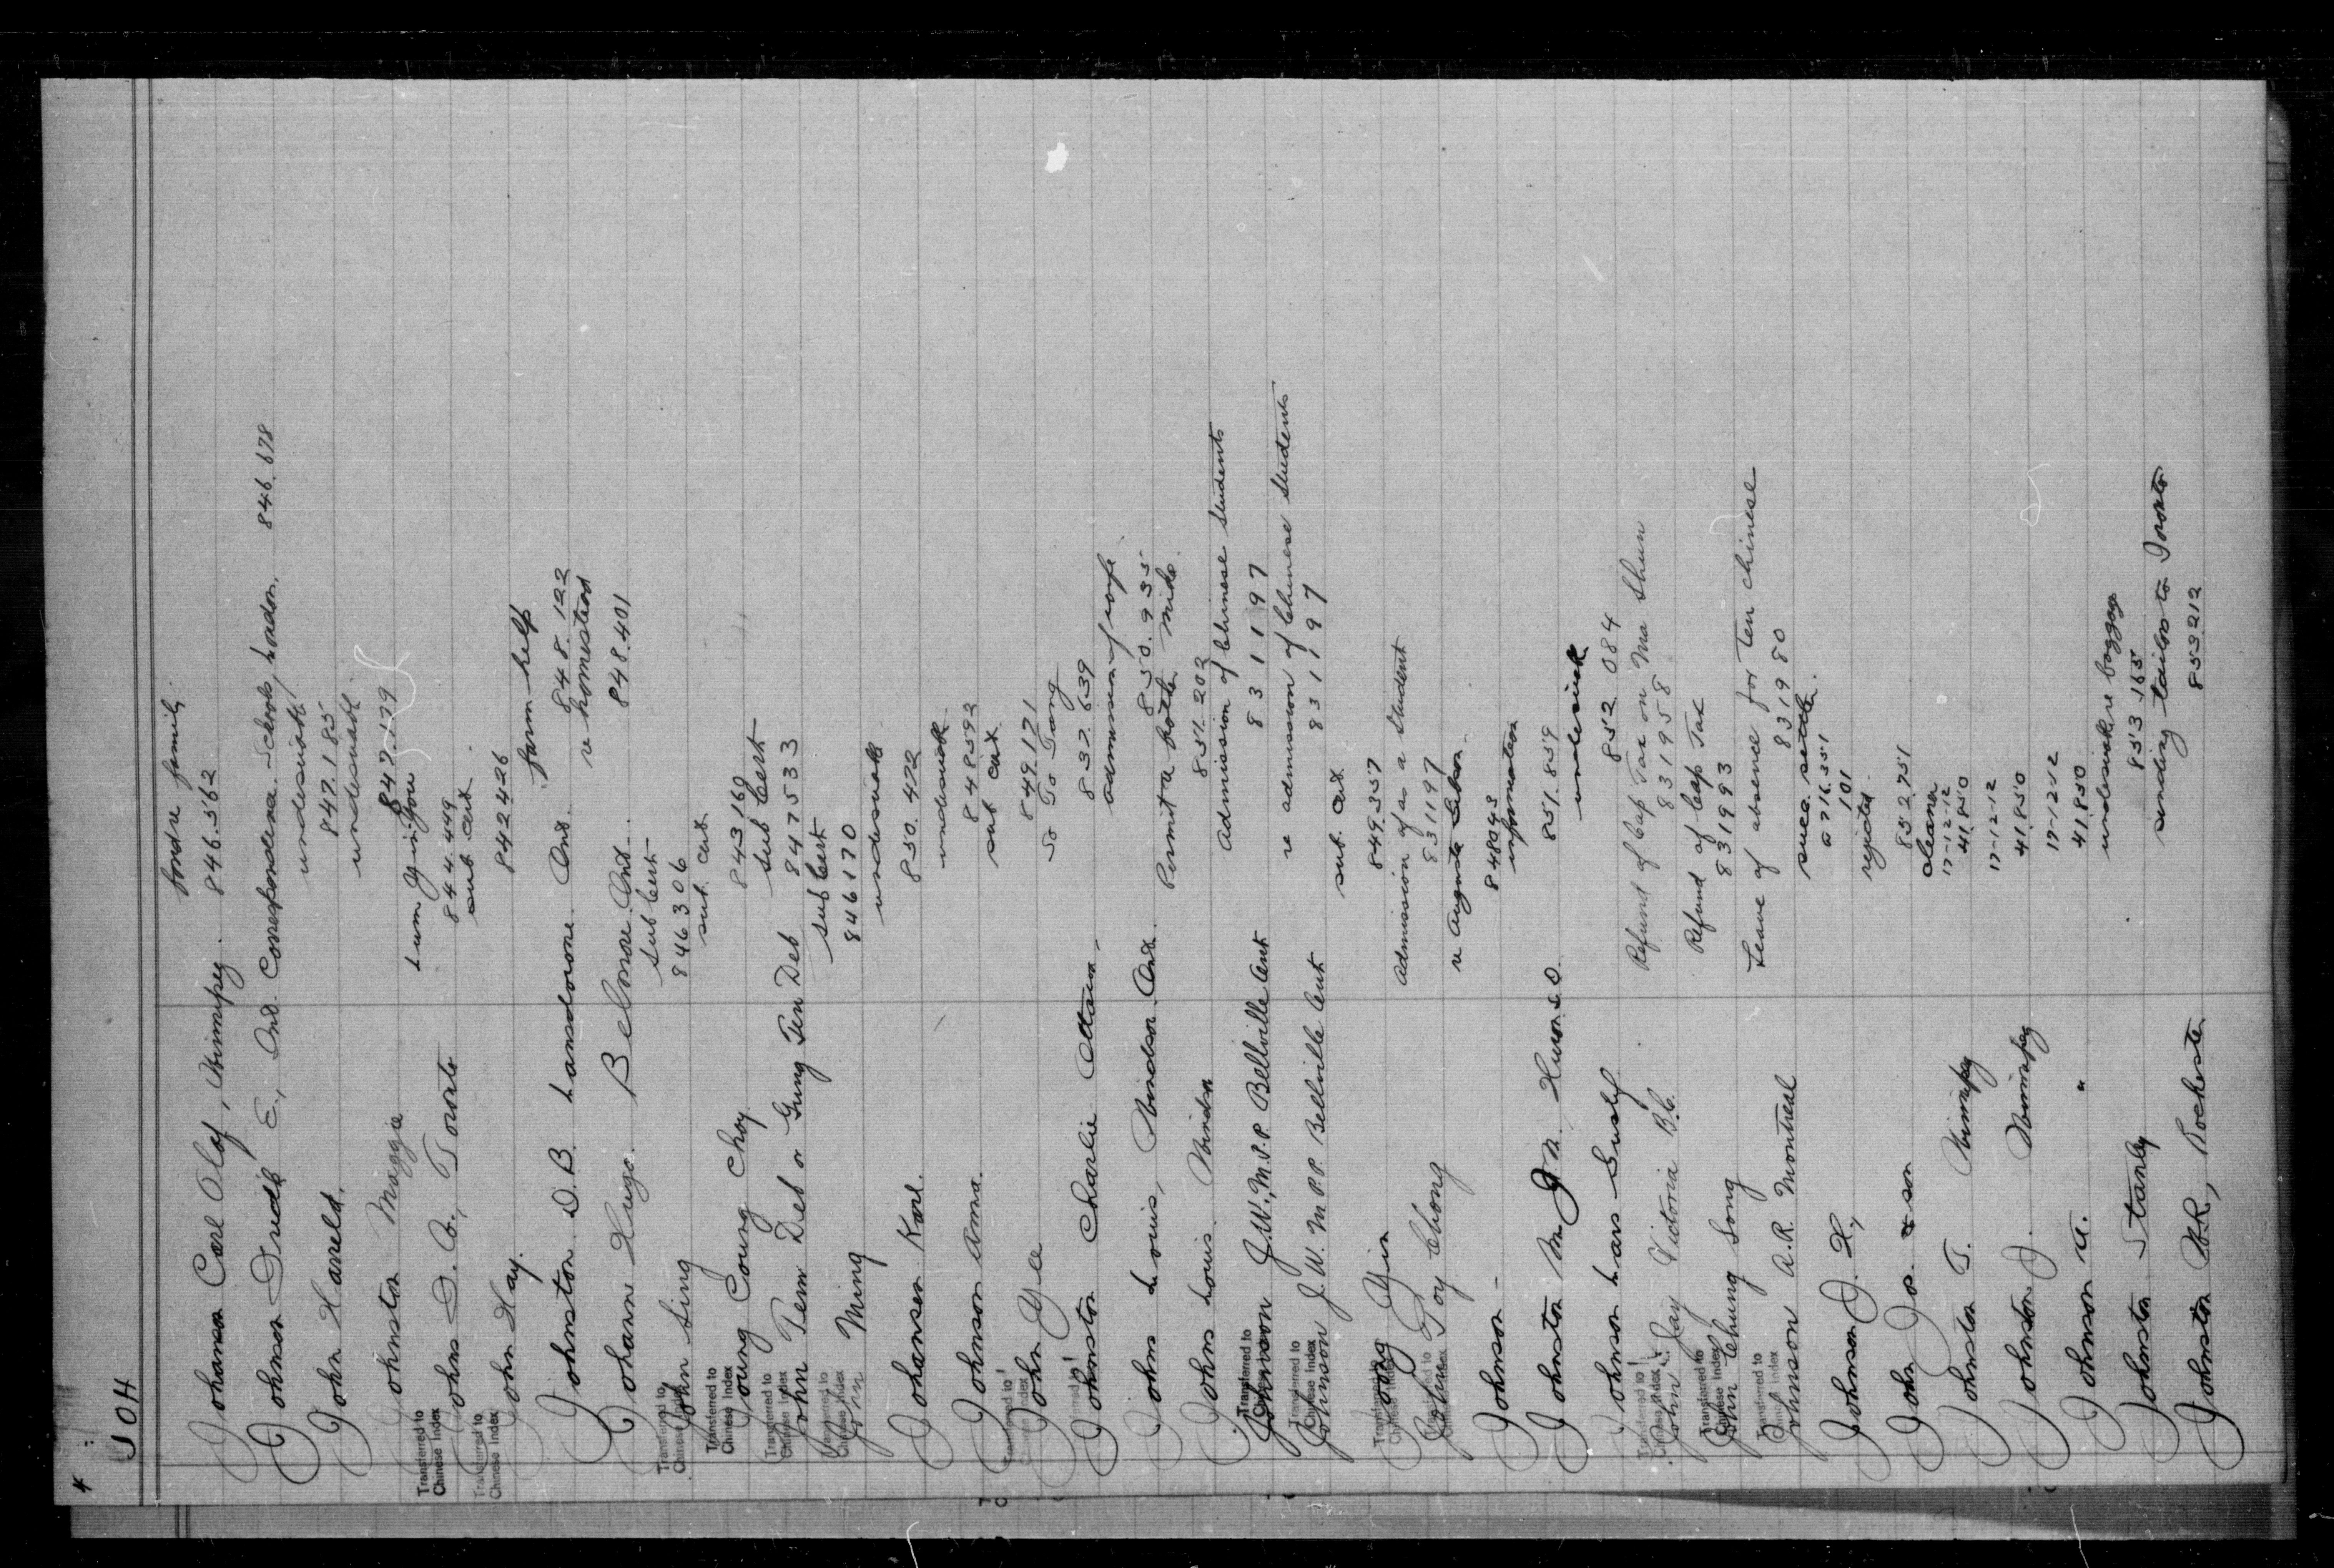 4
JOH
Johanson Carl Olaf, Winnipeg. bonda family. 846.562
Johnson Trudi E., Ont. Correspondence Schools, London. 846.678
undesirable
John Harreld. 847.185
undesirable.
Johnston Maggie 847.179
Transferred to Chinese Index
Lum Yin You
Johns D. W., Toronto 844.449
Transferred to Chinese Index
sub. cert.
John Hay. 842426
farm help
Johnston D.B. Lansdowne Ont. 848.122
re homestead
Johann Hugo. Belmore Ont. 848.401
Transferred to Chinese Index
Sub Cert
John Sing 846306
Transferred to Chinese Index
sub. cert.
Joung Coung Choy 843169
Transferred to Chinese Index
Sub Cert
John Tem Deb or Gung Tem Deb 847533
Transferred to Chinese Index
Sub Cert
John Ming 846170
undesirable
Johansen Karl. 850.472
undesirable
Johnson Anna. 848592
Transferred to Chinese Index
sub cert.
John Yee 849.171
So To Tang
Johnston Charlie Ottawa. 837.639
admission of wife
Johns Louis, Windsor Ont. 850.935
Permit a bottle
Johns Louis. Windsor 851.202
Transferred to Chinese Index
Admission of Chinese Students
Johnson J.W., M.P.P. Bellville Ont 831197
Transferred to Chinese Index
re admission of Chinese Students
Johnson J.W. M.P.P. Bellville Ont 831197
Transferred to Chinese Index
sub. cert.
Joong Yin 849.357
Transferred to Chinese Index
Admission of as a Student
John Toy Chong 831197
re Augusta
Johnson - 848043
information
Johnston M. J. N. Huron S.D. 851.859
undesirable
Johnson Lars Gustaf 852 084
Transferred to Chinese Index
Refund of Cap Tax on Ma Shun
John Jay Victoria B.C. 831958
Transferred to Chinese Index
Refund of Cap Tax
John Chung Song 831993
Transferred to Chinese Index
Leave of absence for ten Chinese
Johnson A.R. Montreal 831980
a 716.351
101
Johnson J. H.,
rejected.
John Jos. & son 852751
cleaner
17-12-12
Johnston T. Winnipeg 41.850
17-12-12
Johnston J. Winnipeg 41.850
17-12-12
Johnson U. " 41.850
undesirable re baggage
Johnston Stanley 853.165
sending tailor to Toronto
Johnston W.R., Rochester 853212